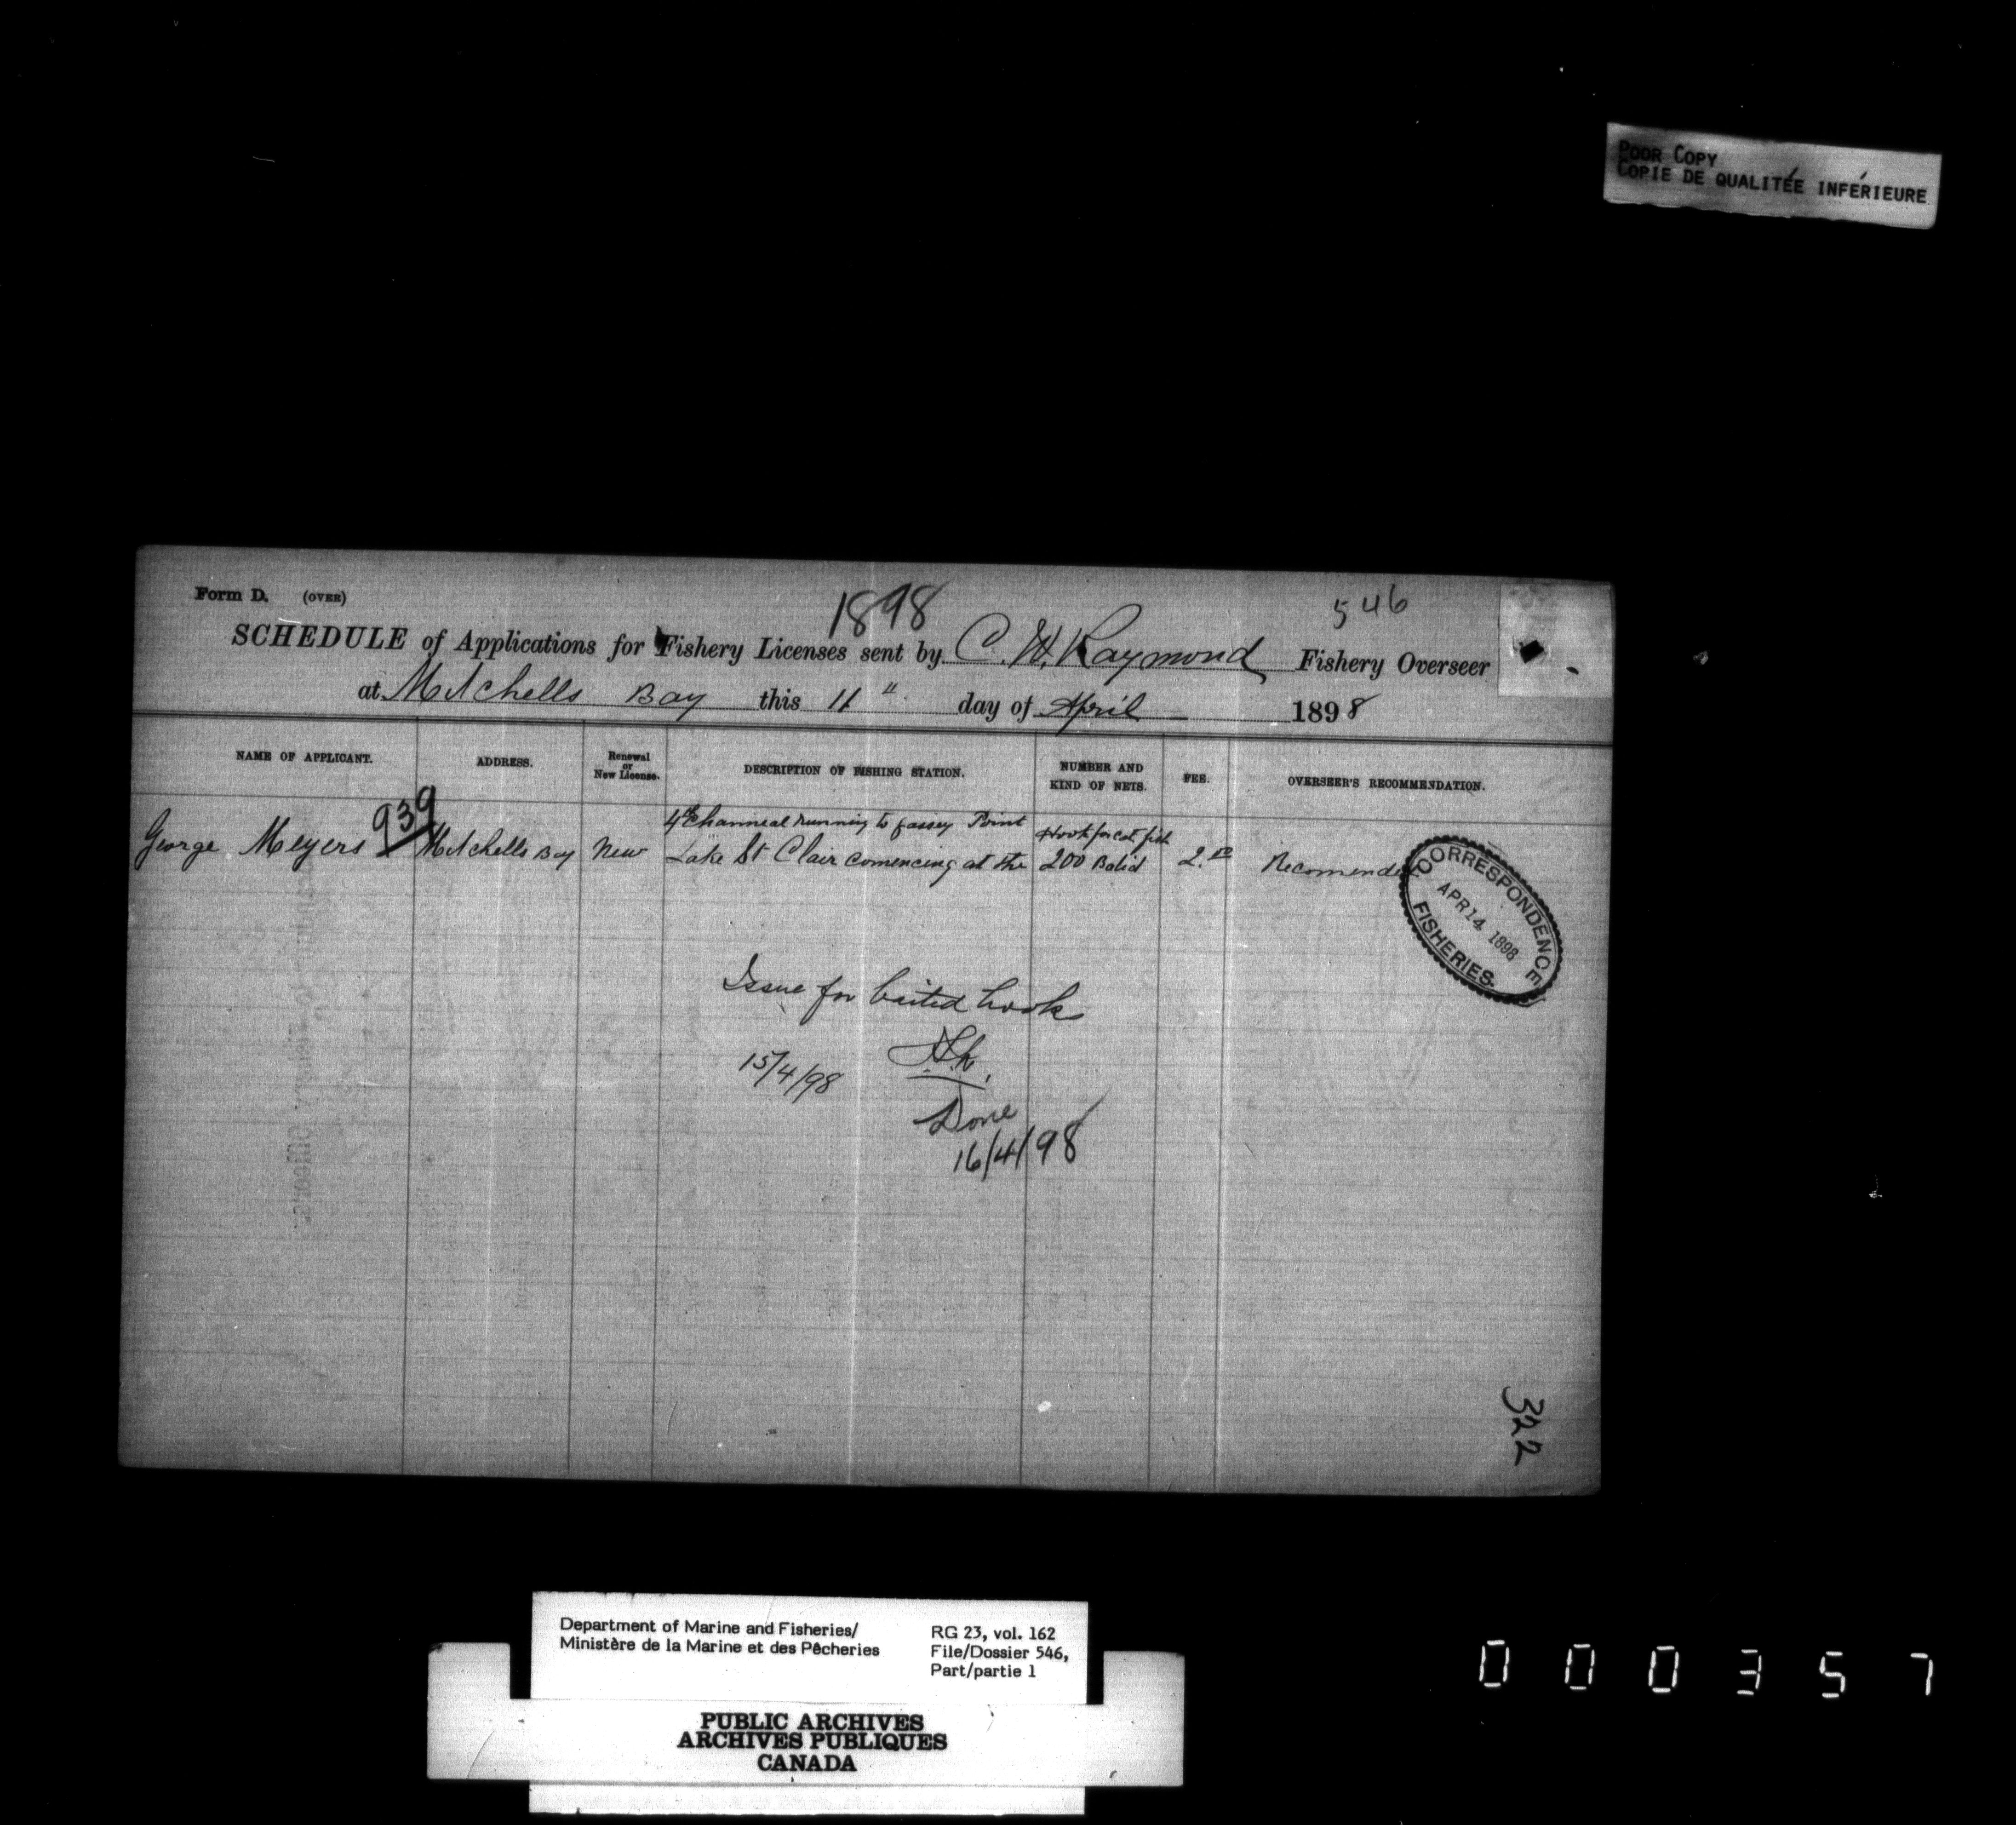 POOR COPY
COPIE DE QUALITÉE INFÉRIEURE
Form D. (OVER)
1898
546
SCHEDULE of Applications for Fishery Licenses sent by C. W. Raymond Fishery Overseer
at Mitchells Bay this 11" day of April 1898
NAME OF APPLICANT. ADDRESS. Renewal or New License. DESCRIPTION OF FISHING STATION. NUMBER AND KIND OF NETS. FEE. OVERSEER'S RECOMMENDATION.
939
4th Channeal running to Point Hook for cat fish
George Meyers Mitchells Bay New Lake St Clair comencing at the 200 Batid 2.00 Recomended
CORRESPONDENCE
APR 14 1898
FISHERIES
Issue for baited hooks
15/4/98
Done
16/4/98
322
Department of Marine and Fisheries/
Ministère de la Marine et des Pêcheries
RG 23, vol. 162
File/Dossier 546,
Part/partie 1
PUBLIC ARCHIVES
ARCHIVES PUBLIQUES
CANADA
000357